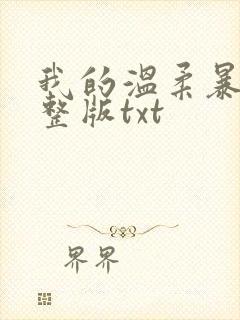 我的温柔暴
整版txt
界界